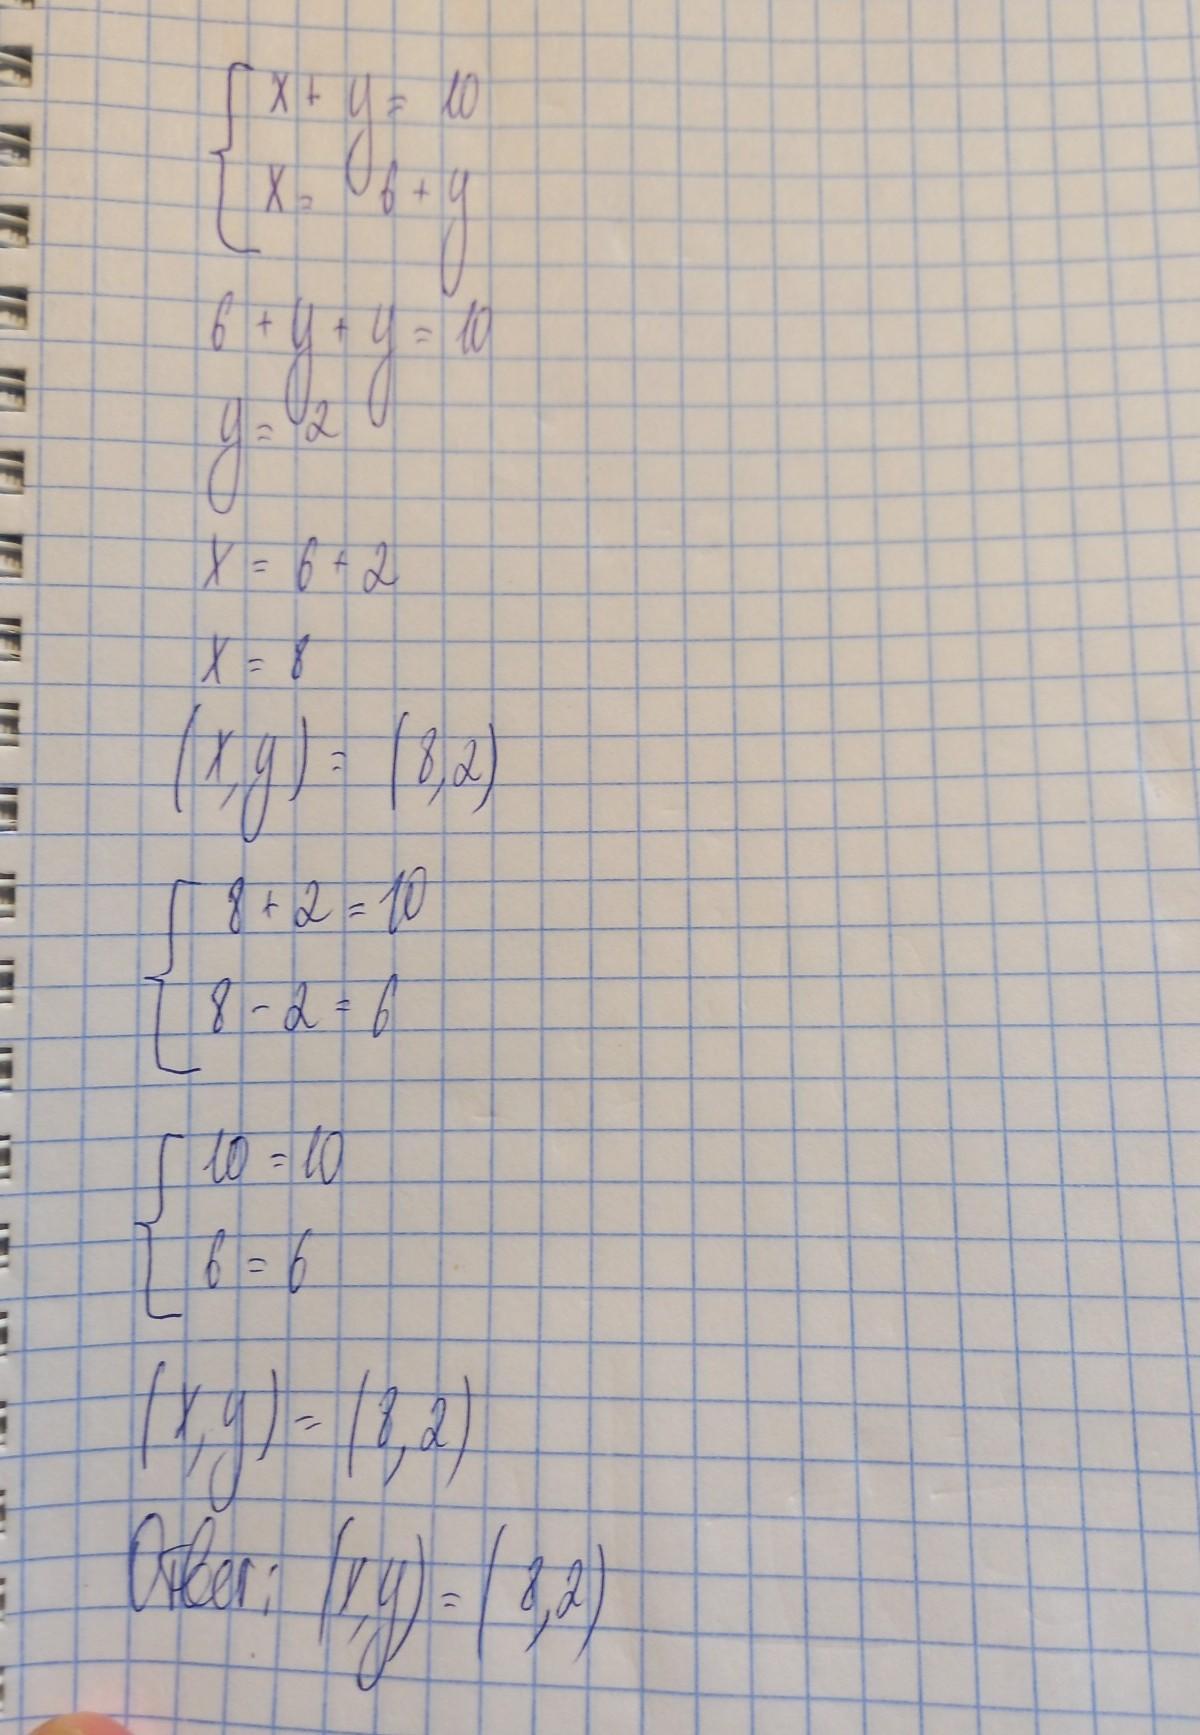 x + y = 10
x = 6 + y
6 + y + y = 10
y = 2
x = 6 + 2
x = 8
(x, y) = (8, 2)
8 + 2 = 10
8 - 2 = 6
10 = 10
6 = 6
(x, y) = (8, 2)
Ответ: (x, y) = (8, 2)